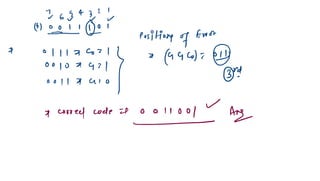 7 6 5 4 3 2 1
(4) 0 0 1 1 1 0 1
Position of Error
* 0 1 1 1 * C0 = 1
* (C2 C1 C0) = 011
0 0 1 0 * C1 = 1
3rd
0 0 1 1 * C2 = 0
* correct code is 0 0 1 1 0 0 1 Ans